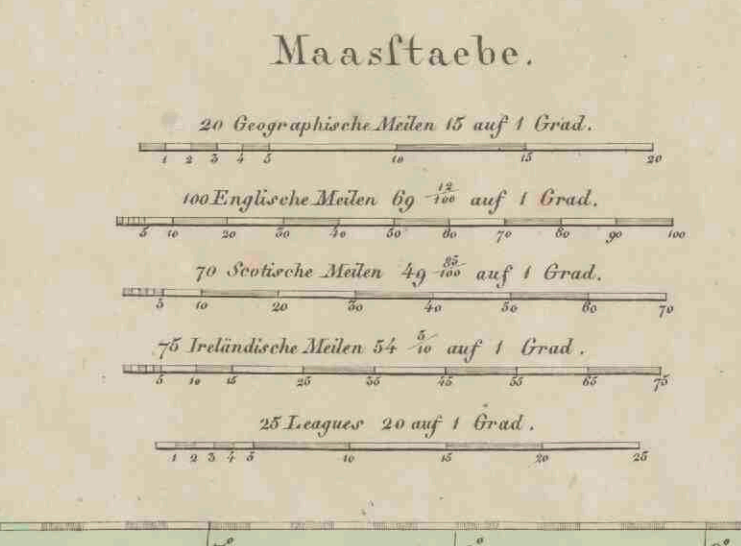 Maasſtaebe.
20 Geographische Meilen 15 auf 1 Grad.
1 2 3 4 5 10 15 20
100 Englische Meilen 69 12/100 auf 1 Grad.
5 10 20 30 40 50 60 70 80 90 100
70 Scotische Meilen 49 85/100 auf 1 Grad.
5 10 20 30 40 50 60 70
75 Ireländische Meilen 54 5/10 auf 1 Grad.
5 10 15 25 35 45 55 65 75
25 Leagues 20 auf 1 Grad.
1 2 3 4 5 10 15 20 25